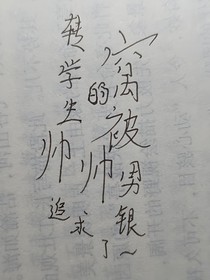 窝被男银
的帅
转学生帅
追求了~